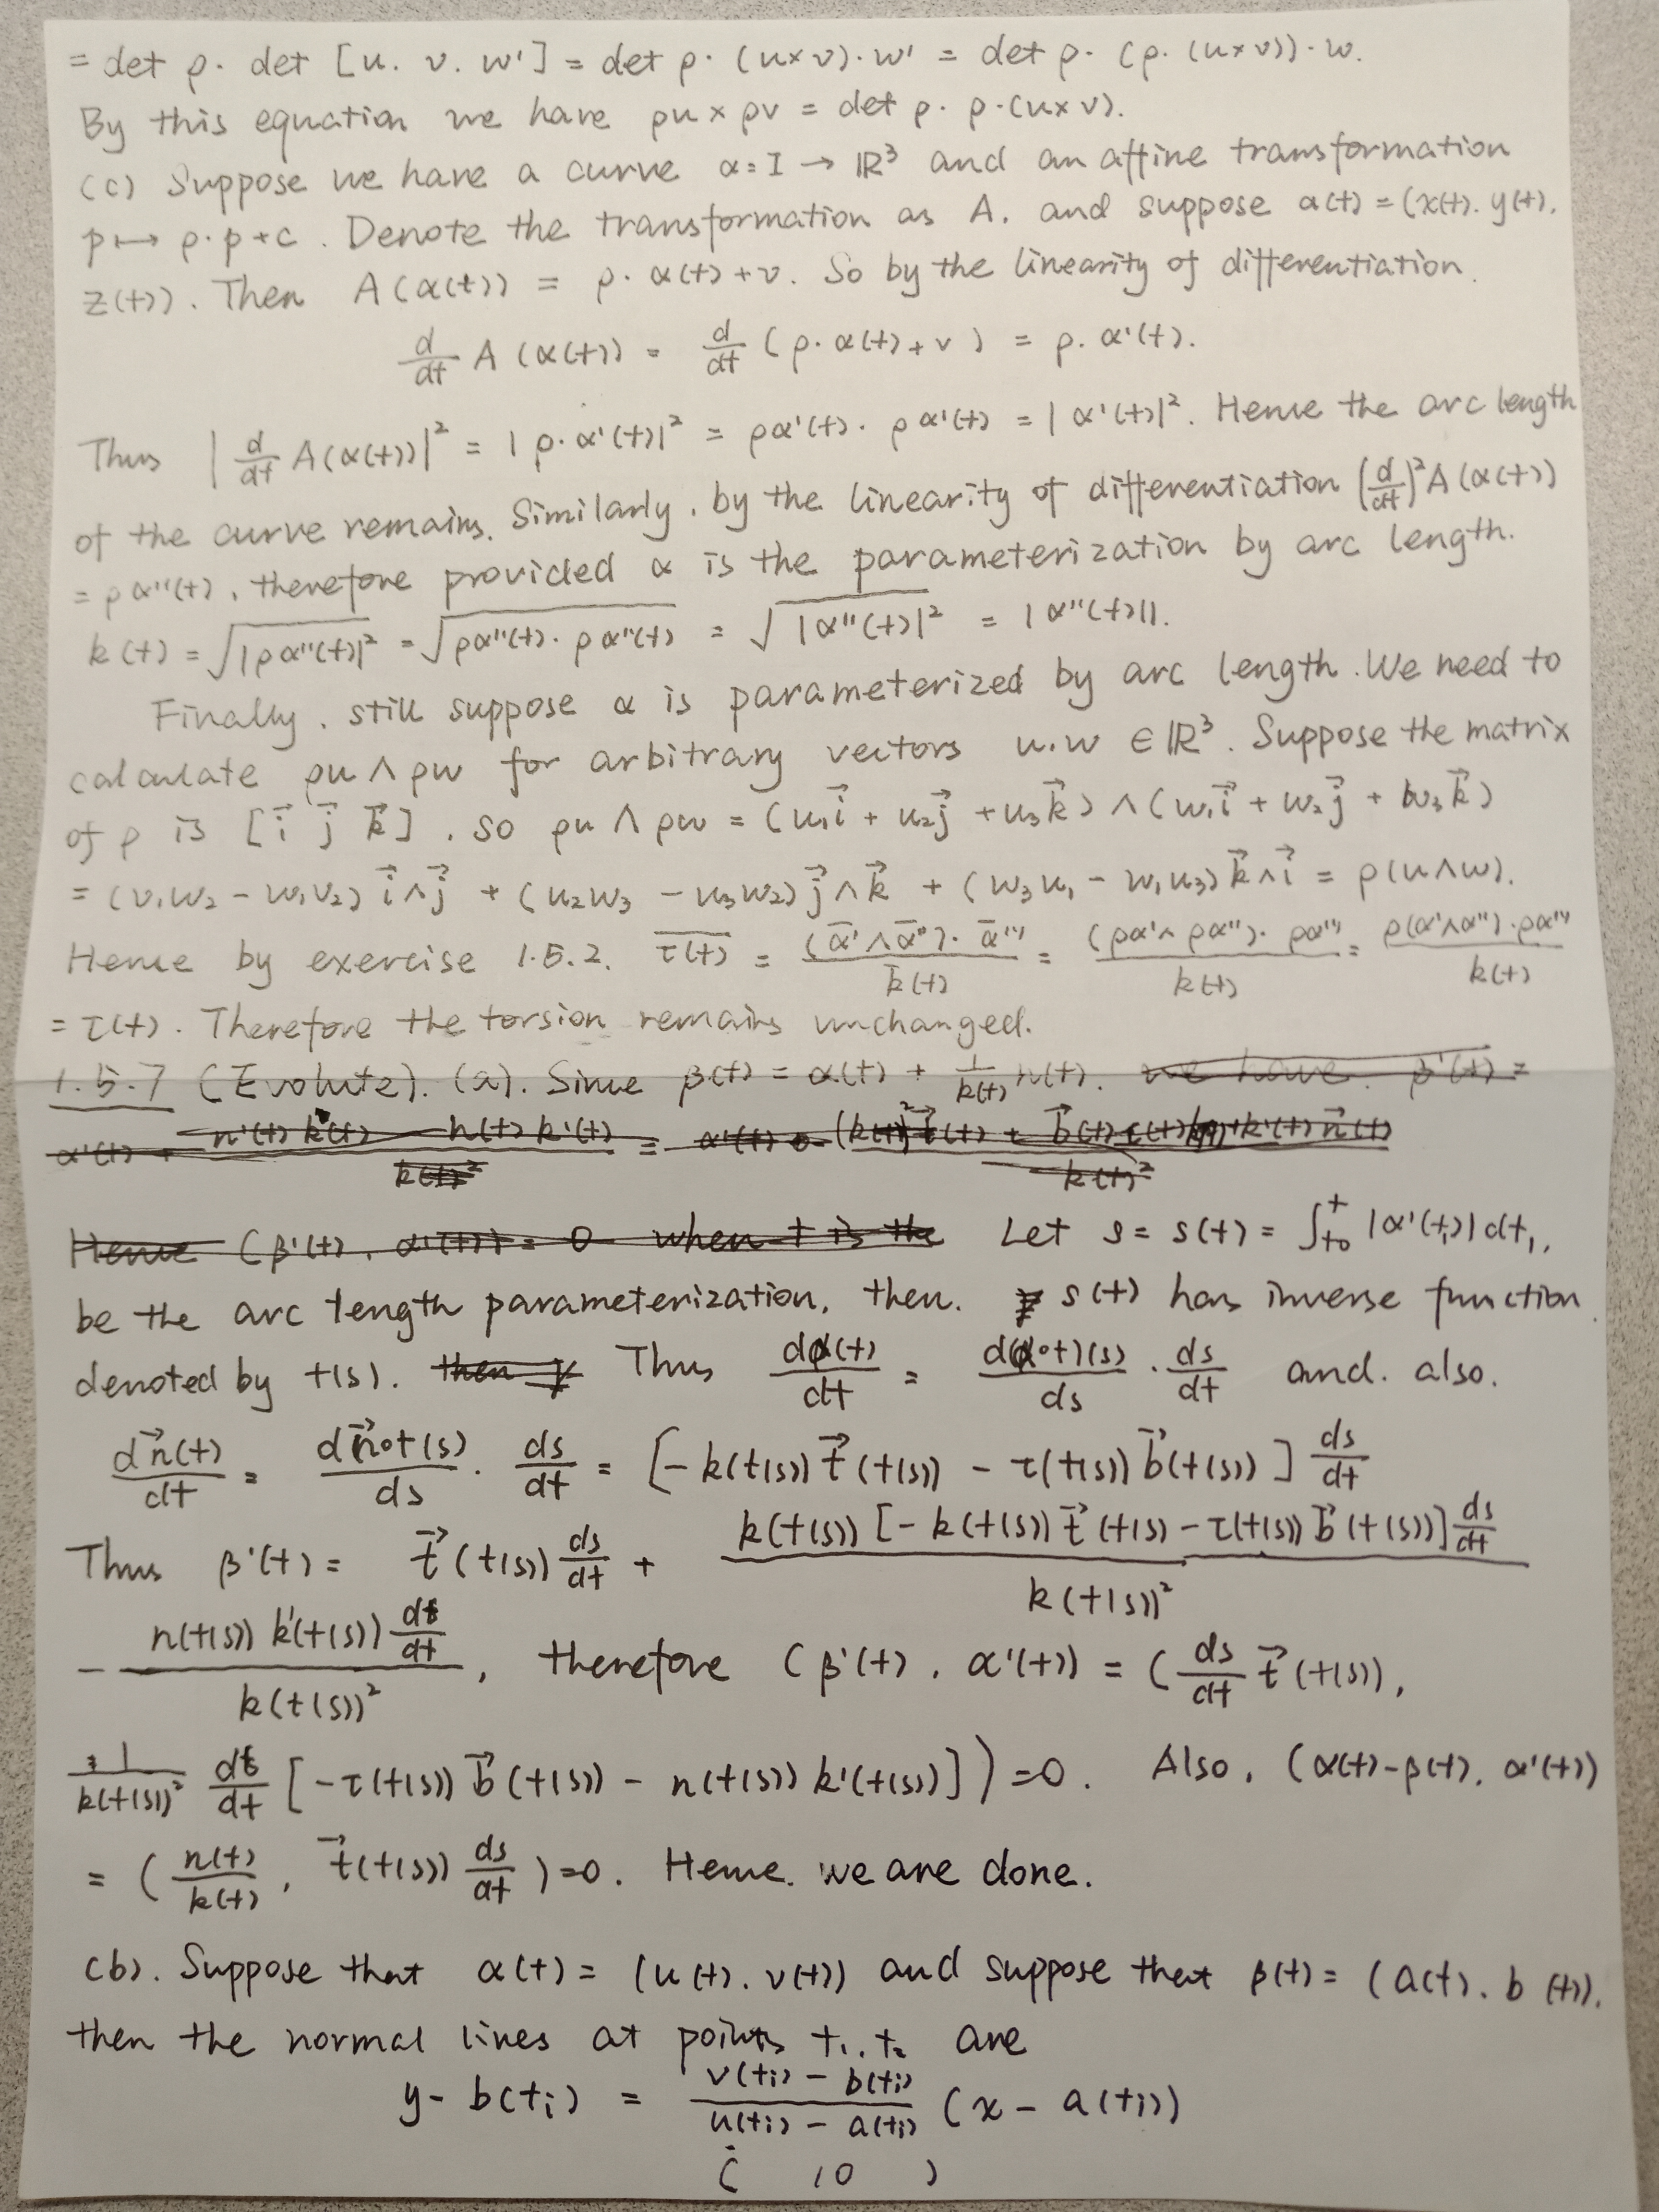 = det ρ · det [u. v. w'] = det ρ · (u×v)·w' = det ρ · (ρ·(u×v))·w.
By this equation we have ρu × ρv = det ρ · ρ·(u×v).
(c) Suppose we have a curve α = I → ℝ³ and an affine transformation
p ↦ ρ·p+c. Denote the transformation as A, and suppose α(t) = (x(t). y(t).
z(t)). Then A(α(t)) = ρ·α(t)+v. So by the linearity of differentiation.
d/dt A(α(t)) = d/dt (ρ·α(t)+v) = ρ·α'(t).
Thus |d/dt A(α(t))|² = |ρ·α'(t)|² = ρα'(t)·ρα'(t) = |α'(t)|². Hence the arc length
of the curve remains. Similarly, by the linearity of differentiation (d/dt)²A(α(t))
= ρα''(t), therefore provided α is the parameterization by arc length.
k(t) = √|ρα''(t)|² = √ρα''(t)·ρα''(t) = √|α''(t)|² = |α''(t)||.
Finally, still suppose α is parameterized by arc length. We need to
calculate ρu ∧ ρw for arbitrary vectors u.w ∈ ℝ³. Suppose the matrix
of ρ is [i⃗ j⃗ k⃗], so ρu ∧ ρw = (u₁i⃗ + u₂j⃗ + u₃k⃗) ∧ (w₁i⃗ + w₂j⃗ + w₃k⃗)
= (v₁w₂ - w₁v₂) i⃗∧j⃗ + (u₂w₃ - u₃w₂) j⃗∧k⃗ + (w₃u₁ - w₁u₃) k⃗∧i⃗ = ρ(u∧w).
Hence by exercise 1.5.2. τ̅(t) = (α̅'∧α̅'')·α̅'''/k̅(t) = (ρα'∧ρα'')·ρα'''/k(t) = ρ(α'∧α'')·ρα'''/k(t)
= τ(t). Therefore the torsion remains unchanged.
1.5.7 (Evolute). (a). Since β(t) = α(t) + 1/k(t) n(t). we have. β'(t) =
α'(t) + n'(t)k(t) - n(t)k'(t)/k(t)² =
Hence (β'(t), α'(t)) = 0 when t is the Let s = s(t) = ∫_{t₀}^{t} |α'(t₁)|dt₁,
be the arc length parameterization, then. s(t) has inverse function
denoted by t(s). then Thus dα(t)/dt = d(α∘t)(s)/ds · ds/dt and. also.
dn⃗(t)/dt = dn⃗∘t(s)/ds · ds/dt = [-k(t(s)) t⃗(t(s)) - τ(t(s)) b⃗(t(s))] ds/dt
Thus β'(t) = t⃗(t(s)) ds/dt + k(t(s))[-k(t(s)) t⃗(t(s) - τ(t(s)) b⃗(t(s))] ds/dt / k(t(s))²
- n(t(s)) k'(t(s)) dt/dt / k(t(s))², therefore (β'(t), α'(t)) = (ds/dt t⃗(t(s)),
1/k(t(s))² dt/dt [-τ(t(s)) b⃗(t(s)) - n(t(s)) k'(t(s))]) = 0. Also, (α(t)-β(t), α'(t))
= (n(t)/k(t), t⃗(t(s)) ds/dt) = 0. Hence. we are done.
(b). Suppose that α(t) = (u(t). v(t)) and suppose that β(t) = (a(t). b(t)).
then the normal lines at points t₁, t₂ are
y - b(tᵢ) = v(tᵢ) - b(tᵢ)/u(tᵢ) - a(tᵢ) (x - a(tᵢ))
( 10 )